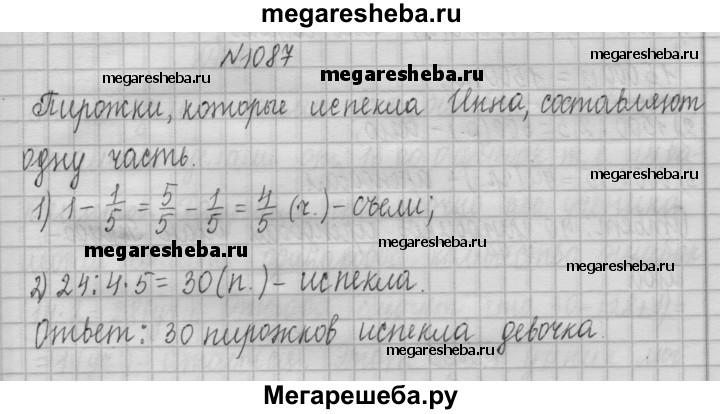 megaresheba.ru
№1087
megaresheba.ru
megaresheba.ru
megaresheba.ru
Пирожки, которые испекла Инна, составляют
одну часть.
megaresheba.ru
1) 1 - 1/5 = 5/5 - 1/5 = 4/5 (ч.) - съели;
megaresheba.ru
megaresheba.ru
2) 24 : 4 · 5 = 30 (п.) - испекла.
Ответ: 30 пирожков испекла девочка.
megaresheba.ru
Мегарешеба.ру